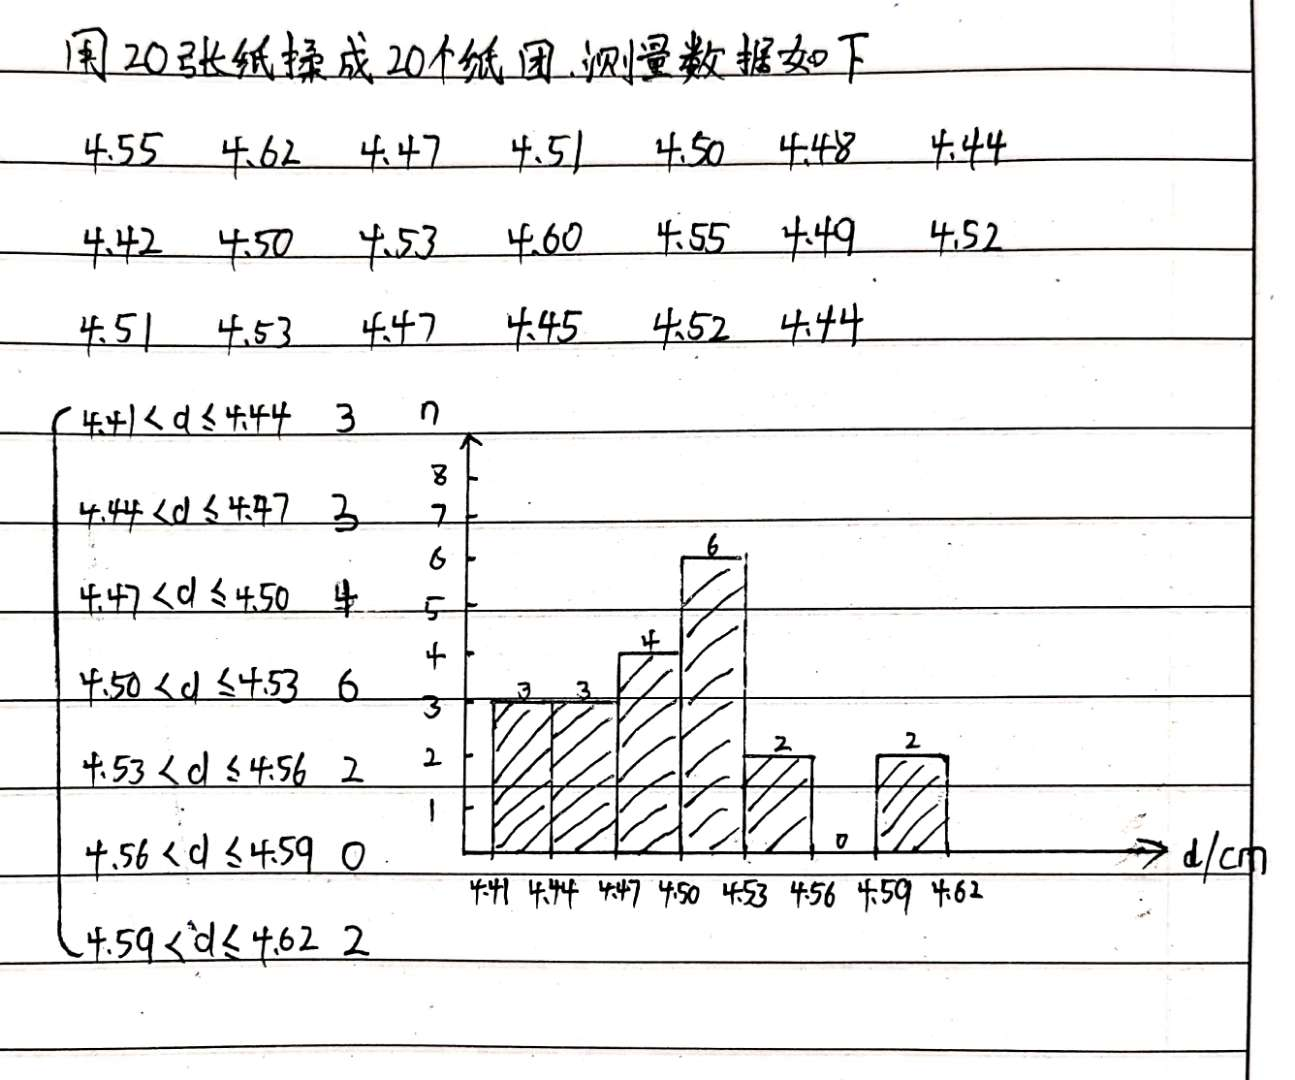 用20张纸揉成20个纸团.测量数据如下
4.55 4.62 4.47 4.51 4.50 4.48 4.44
4.42 4.50 4.53 4.60 4.55 4.49 4.52
4.51 4.53 4.47 4.45 4.52 4.44
4.41<d≤4.44 3
4.44<d≤4.47 3
4.47<d≤4.50 4
4.50<d≤4.53 6
4.53<d≤4.56 2
4.56<d≤4.59 0
4.59<d≤4.62 2
n
8
7
6
5
4
3
2
1
3 3 4 6 2 0 2
d/cm
4.41 4.44 4.47 4.50 4.53 4.56 4.59 4.62